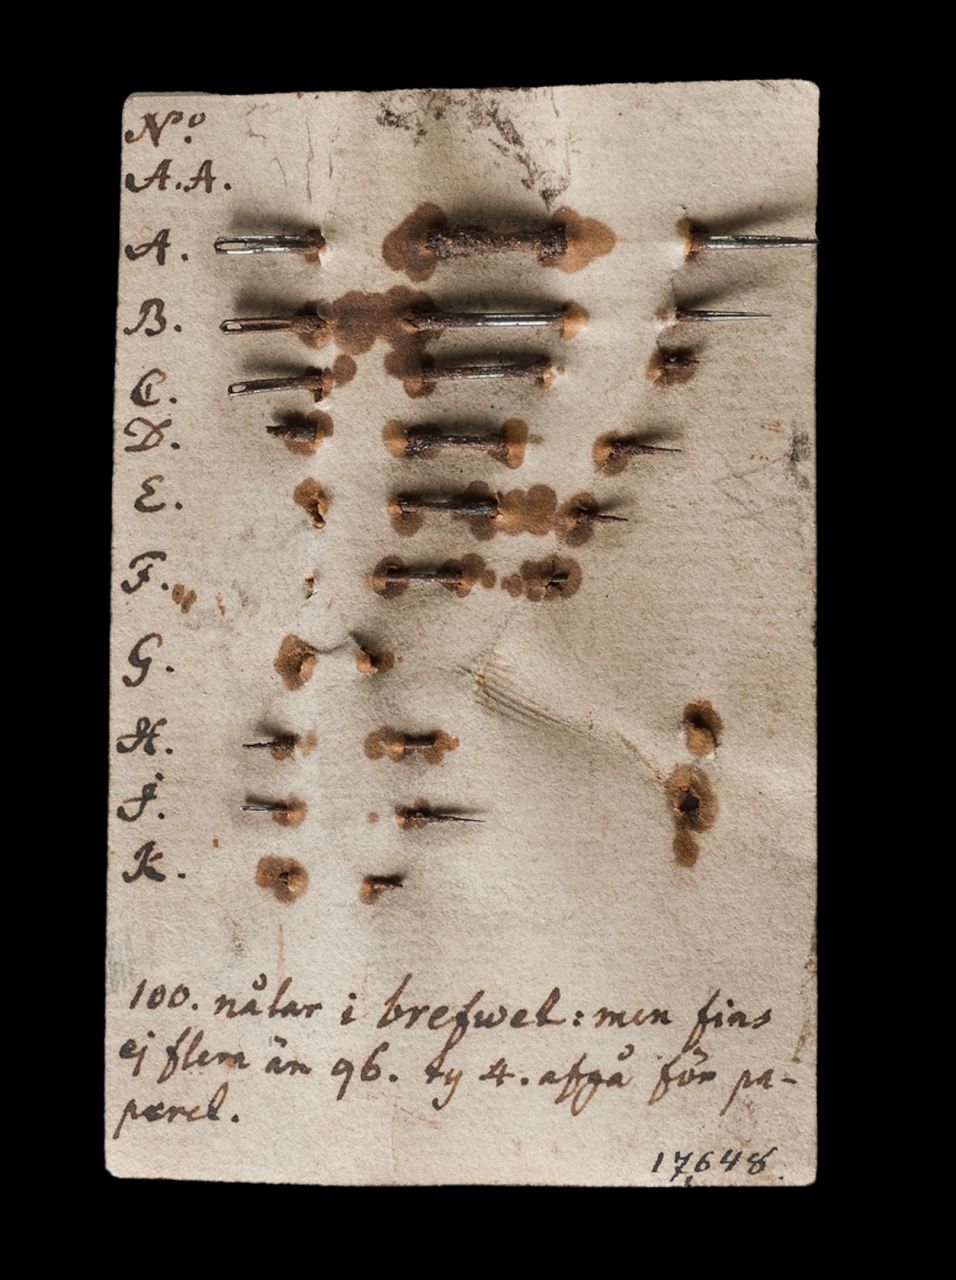 N:o
A.A.
A.
B.
C.
D.
E.
F.
G.
H.
J.
K.
100. nålar i brefwet: men fins
ej flera än 96. ty 4. afgå för pa-
peret.
17,648.